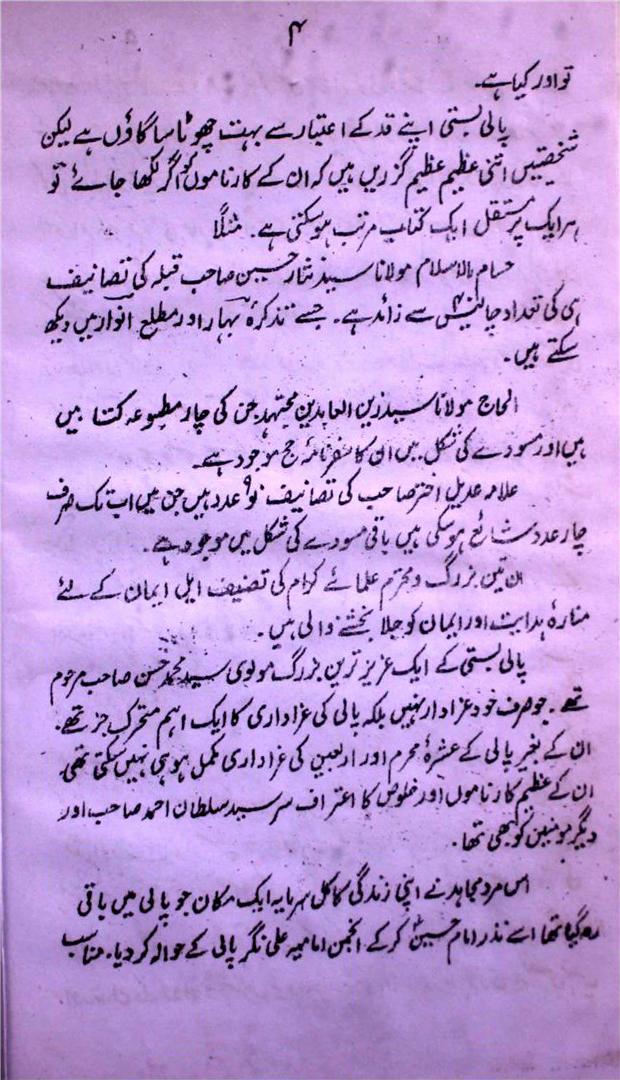 ۴
تو اور کیا ہے۔
پالی بستی اپنے قد کے اعتبار سے بہت چھوٹا سا گاؤں ہے لیکن
شخصیتیں اتنی عظیم عظیم گزریں ہیں کہ ان کے کارناموں کو اگر لکھا جائے تو
ہر ایک پر مستقل ایک کتاب مرتب ہو سکتی ہے۔ مثلاً
حسام الاسلام مولانا سید نثار حسین صاحب قبلہ کی تصانیف
ہی کی تعداد چالیس سے زائد ہے۔ جسے تذکرۂ بے بہا اور مطلع انوار میں دیکھ
سکتے ہیں۔
الحاج مولانا سید زین العابدین مجتہد جن کی چار مطبوعہ کتابیں
ہیں اور مسودے کی شکل میں ان کا سفر نامۂ حج موجود ہے۔
علامہ عدیل اختر صاحب کی تصانیف نو ۹ عدد ہیں جن میں اب تک صرف
چار عدد شائع ہو سکی ہیں باقی مسودے کی شکل میں موجود ہے۔
ان تین بزرگ و محترم علمائے کرام کی تصنیف اہل ایمان کے لئے
منارۂ ہدایت اور ایمان کو جلا بخشنے والی ہیں۔
پالی بستی کے ایک عزیز ترین بزرگ مولوی سید محمد حسن صاحب مرحوم
تھے۔ جو صرف خود عزادار نہیں بلکہ پالی کی عزاداری کا ایک اہم متحرک جز تھے۔
ان کے بغیر پالی کے عشرۂ محرم اور اربعین کی عزاداری مکمل ہو ہی نہیں سکتی تھی
ان کے عظیم کارناموں اور خلوص کا اعتراف سر سید سلطان احمد صاحب اور
دیگر مومنین کو بھی تھا۔
اس مرد مجاہد نے اپنی زندگی کا کل سرمایہ ایک مکان جو پالی میں باقی
رہ گیا تھا اسے نذر امام حسینؑ کر کے انجمن امامیہ علی نگر پالی کے حوالہ کر دیا۔ مناسب